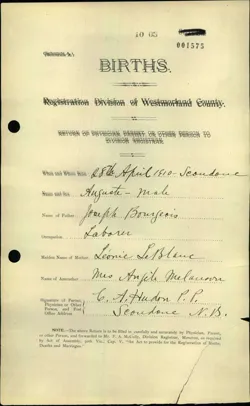 10 05
001575
BIRTHS.
Registration Division of Westmorland County.
RETURN OF PHYSICIAN PARENT OR OTHER PERSON TO
DIVISION REGISTRAR
When and Where Born 28th April 1910 - Scoudouc
Name and Sex Auguste - male
Name of Father Joseph Bourgeois
Occupation Laborer
Maiden Name of Mother Léonie LeBlanc
Name of Accoucher Mrs Angèle Melanson
Signature of Parent,
Physician or Other
Person, and Post
Office Address
C. A. Hudon P.P.
Scoudouc N.B.
NOTE.—The above Return is to be filled in carefully and accurately by Physician, Parent,
or other Person, and forwarded to Mr. F. A. McCully, Division Registrar, Moncton, as required
by Act of Assembly,
Deaths and Marriages.